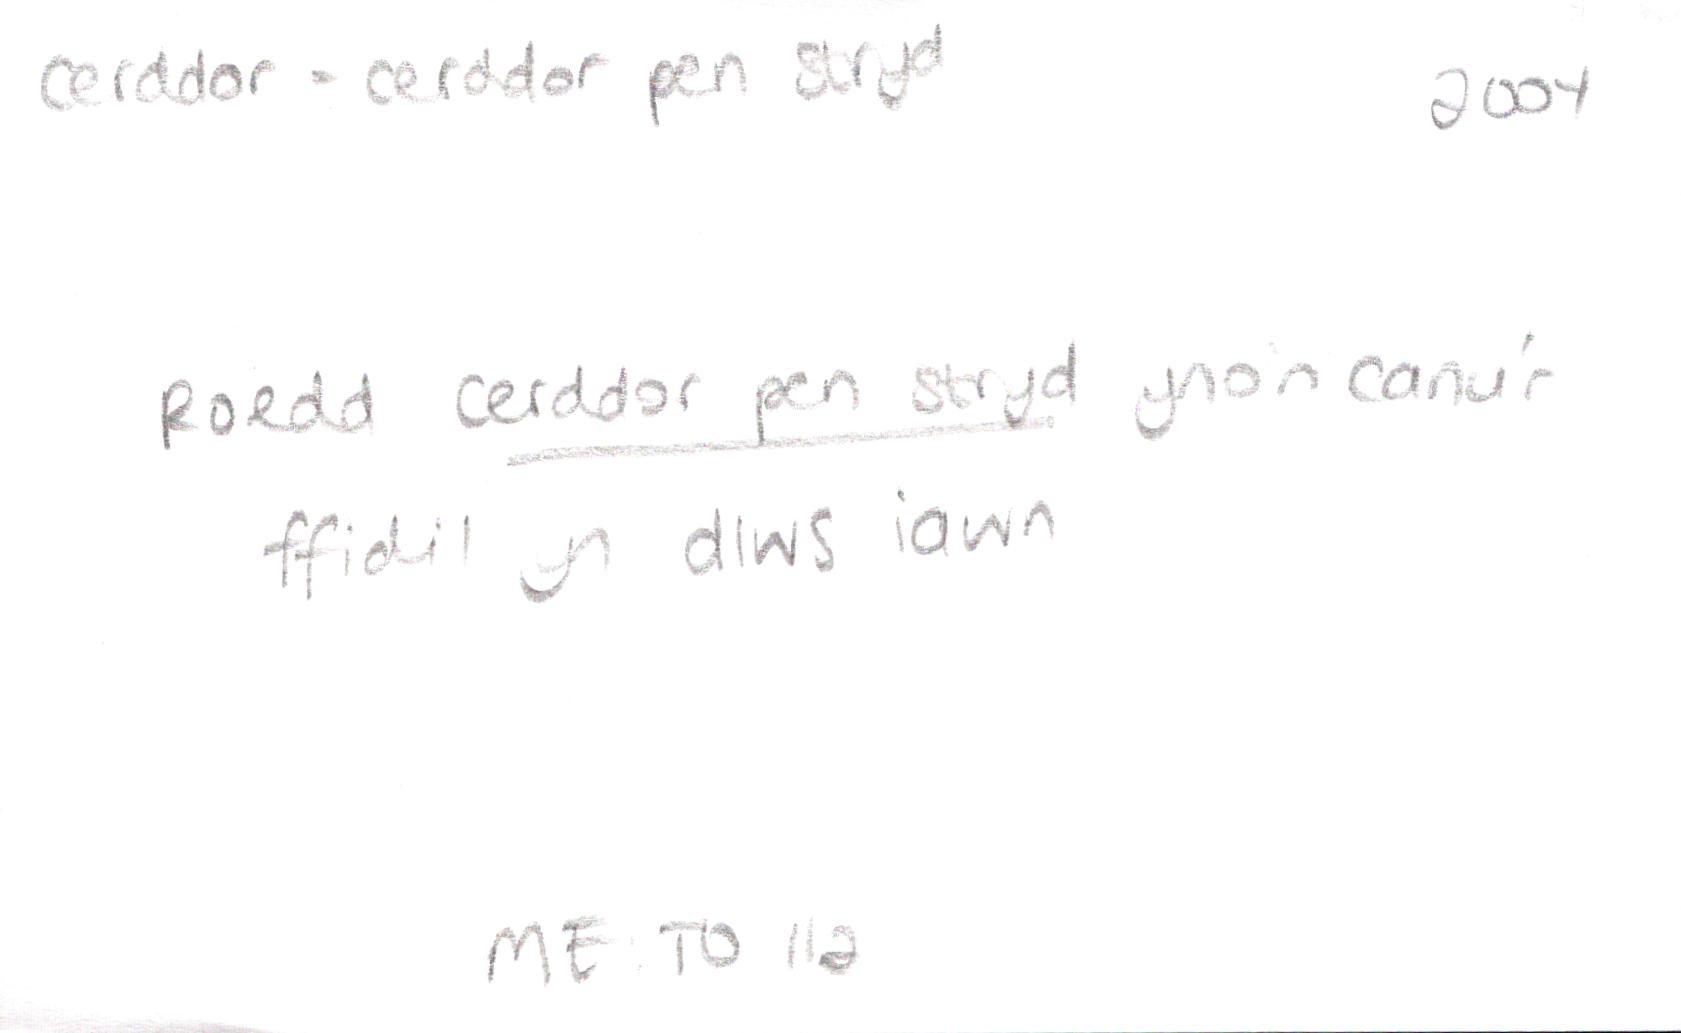 cerddor - cerddor pen stryd 2004
Roedd cerddor pen stryd yno'n canu'r
ffidil yn dlws iawn
ME: TO 112